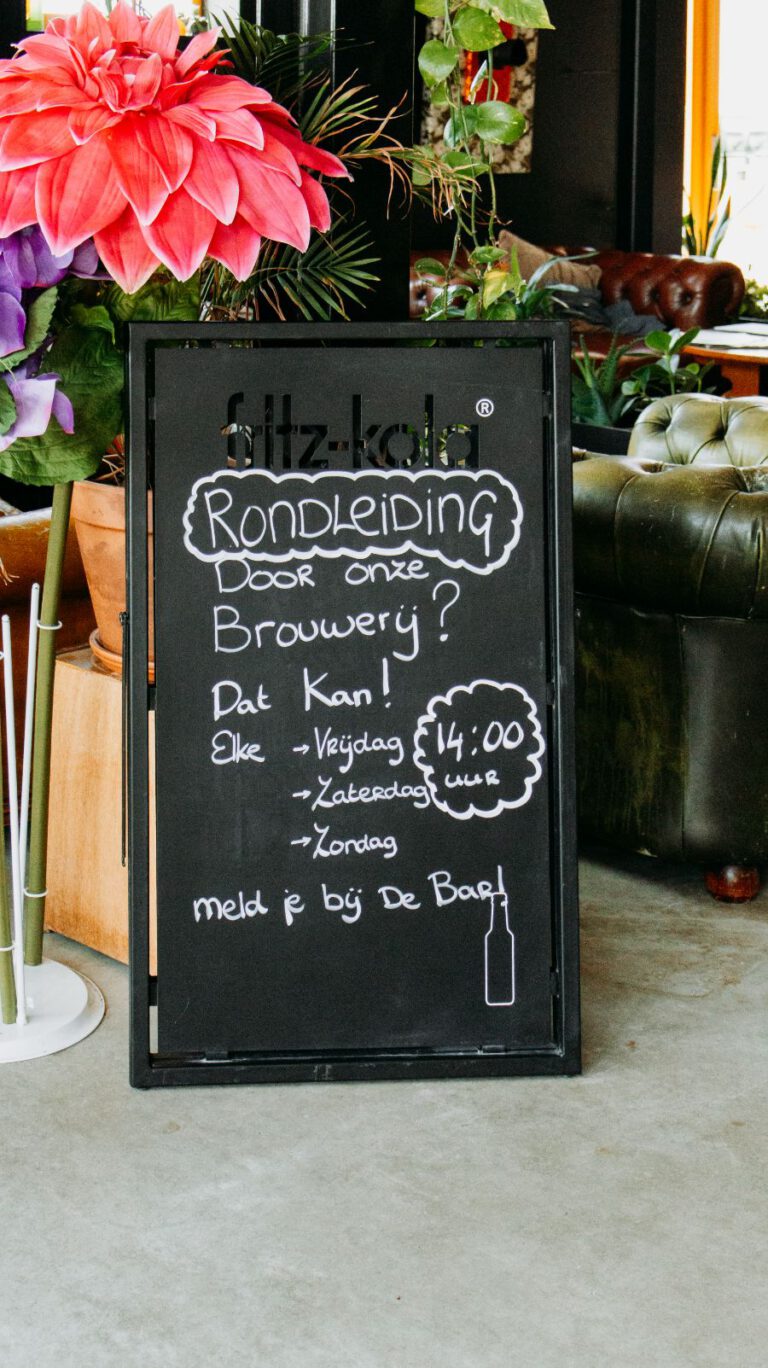 fritz-kola®
RONDLEIDING
DOOR onze
Brouwerij?
Dat Kan!
Elke → Vrijdag
14:00
uur
→ Zaterdag
→ Zondag
meld je bij De Bar!